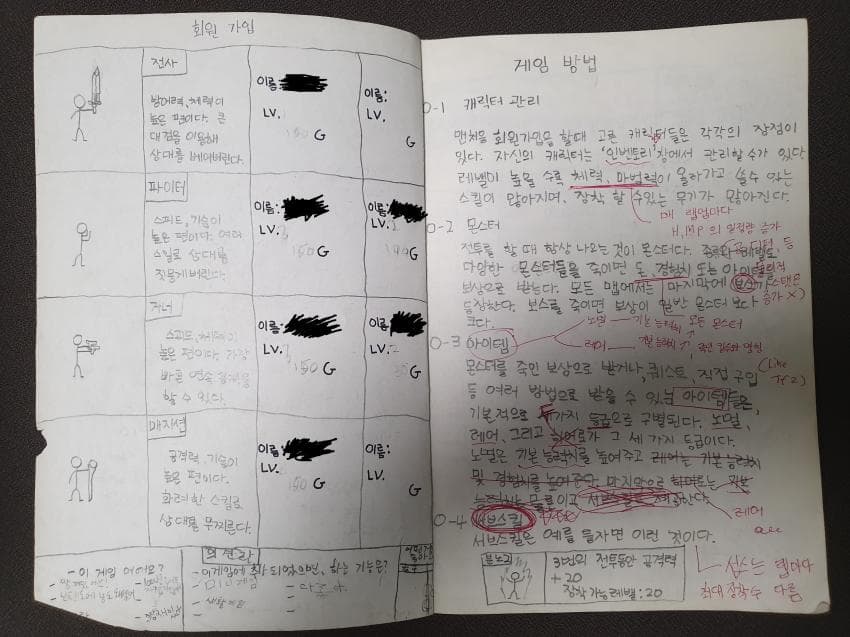 회원 가입
전사
방어력, 체력이
높은 편이다. 큰
대검을 이용해
상대를 베어버린다.
이름:
LV.
150 G
이름:
LV.
G
파이터
스피드, 기술이
높은 편이다. 여러
스킬로 상대를
짓뭉개버린다.
이름:
LV. 3
150 G
이름:
LV. 2
G
거너
스피드, 체력이
높은 편이다. 가장
빠른 연속 공격을
할 수 있다.
이름:
LV.
150 G
이름:
LV. 2
G
매지션
공격력, 기술이
높은 편이다.
화려한 스킬로
상대를 무찌른다.
이름:
LV.
150 G
이름:
LV.
G
- 이 게임 어때요?
의견란
- 이게임에 추가되었으면, 하는 기능은?
게임 방법
0-1 캐릭터 관리
맨처음 회원가입을 할때 고른 캐릭터들은 각각의 장점이
있다. 자신의 캐릭터는 '인벤토리'창에서 관리할 수가 있다
레벨이 높을 수록 체력, 마법력이 올라가고 쓸수 있는
스킬이 많아지며, 장착 할 수있는 무기가 많아진다.
매 랩업마다
H, MP 의 일정량 증가
0-2 몬스터
전투를 할 때 항상 나오는 것이 몬스터다. 종류와 레벨도
다양한 몬스터들을 죽이면 돈, 경험치 또는 아이템
보상으로 받는다. 모든 맵에서는 마지막에 보스가
등장한다. 보스를 죽이면 보상이 일반 몬스터 보다
크다.
0-3 아이템
노멀 기본 능력치 모든 몬스터
레어
몬스터를 죽인 보상으로 받거나, 퀘스트, 직접 구입
(Like
등 여러 방법으로 받을 수 있는 아이템들은
기본적으로 가지 등급으로 구별된다. 노멀,
레어, 그리고 히어로가 그 세 가지 등급이다.
노멀은 기본 능력치를 높여주고 레어는 기본 능력치
및 경험치를 높여준다. 마지막으로 히어로는 기본
능력치는 물론이고 서브스킬도 제공한다.
레어
0-4 서브스킬
서브스킬은 예를 들자면 이런 것이다.
분노의
3번의 전투동안 공격력
+20
장착가능레벨 : 20
섭스는 랩마다
최대 장착수 다름